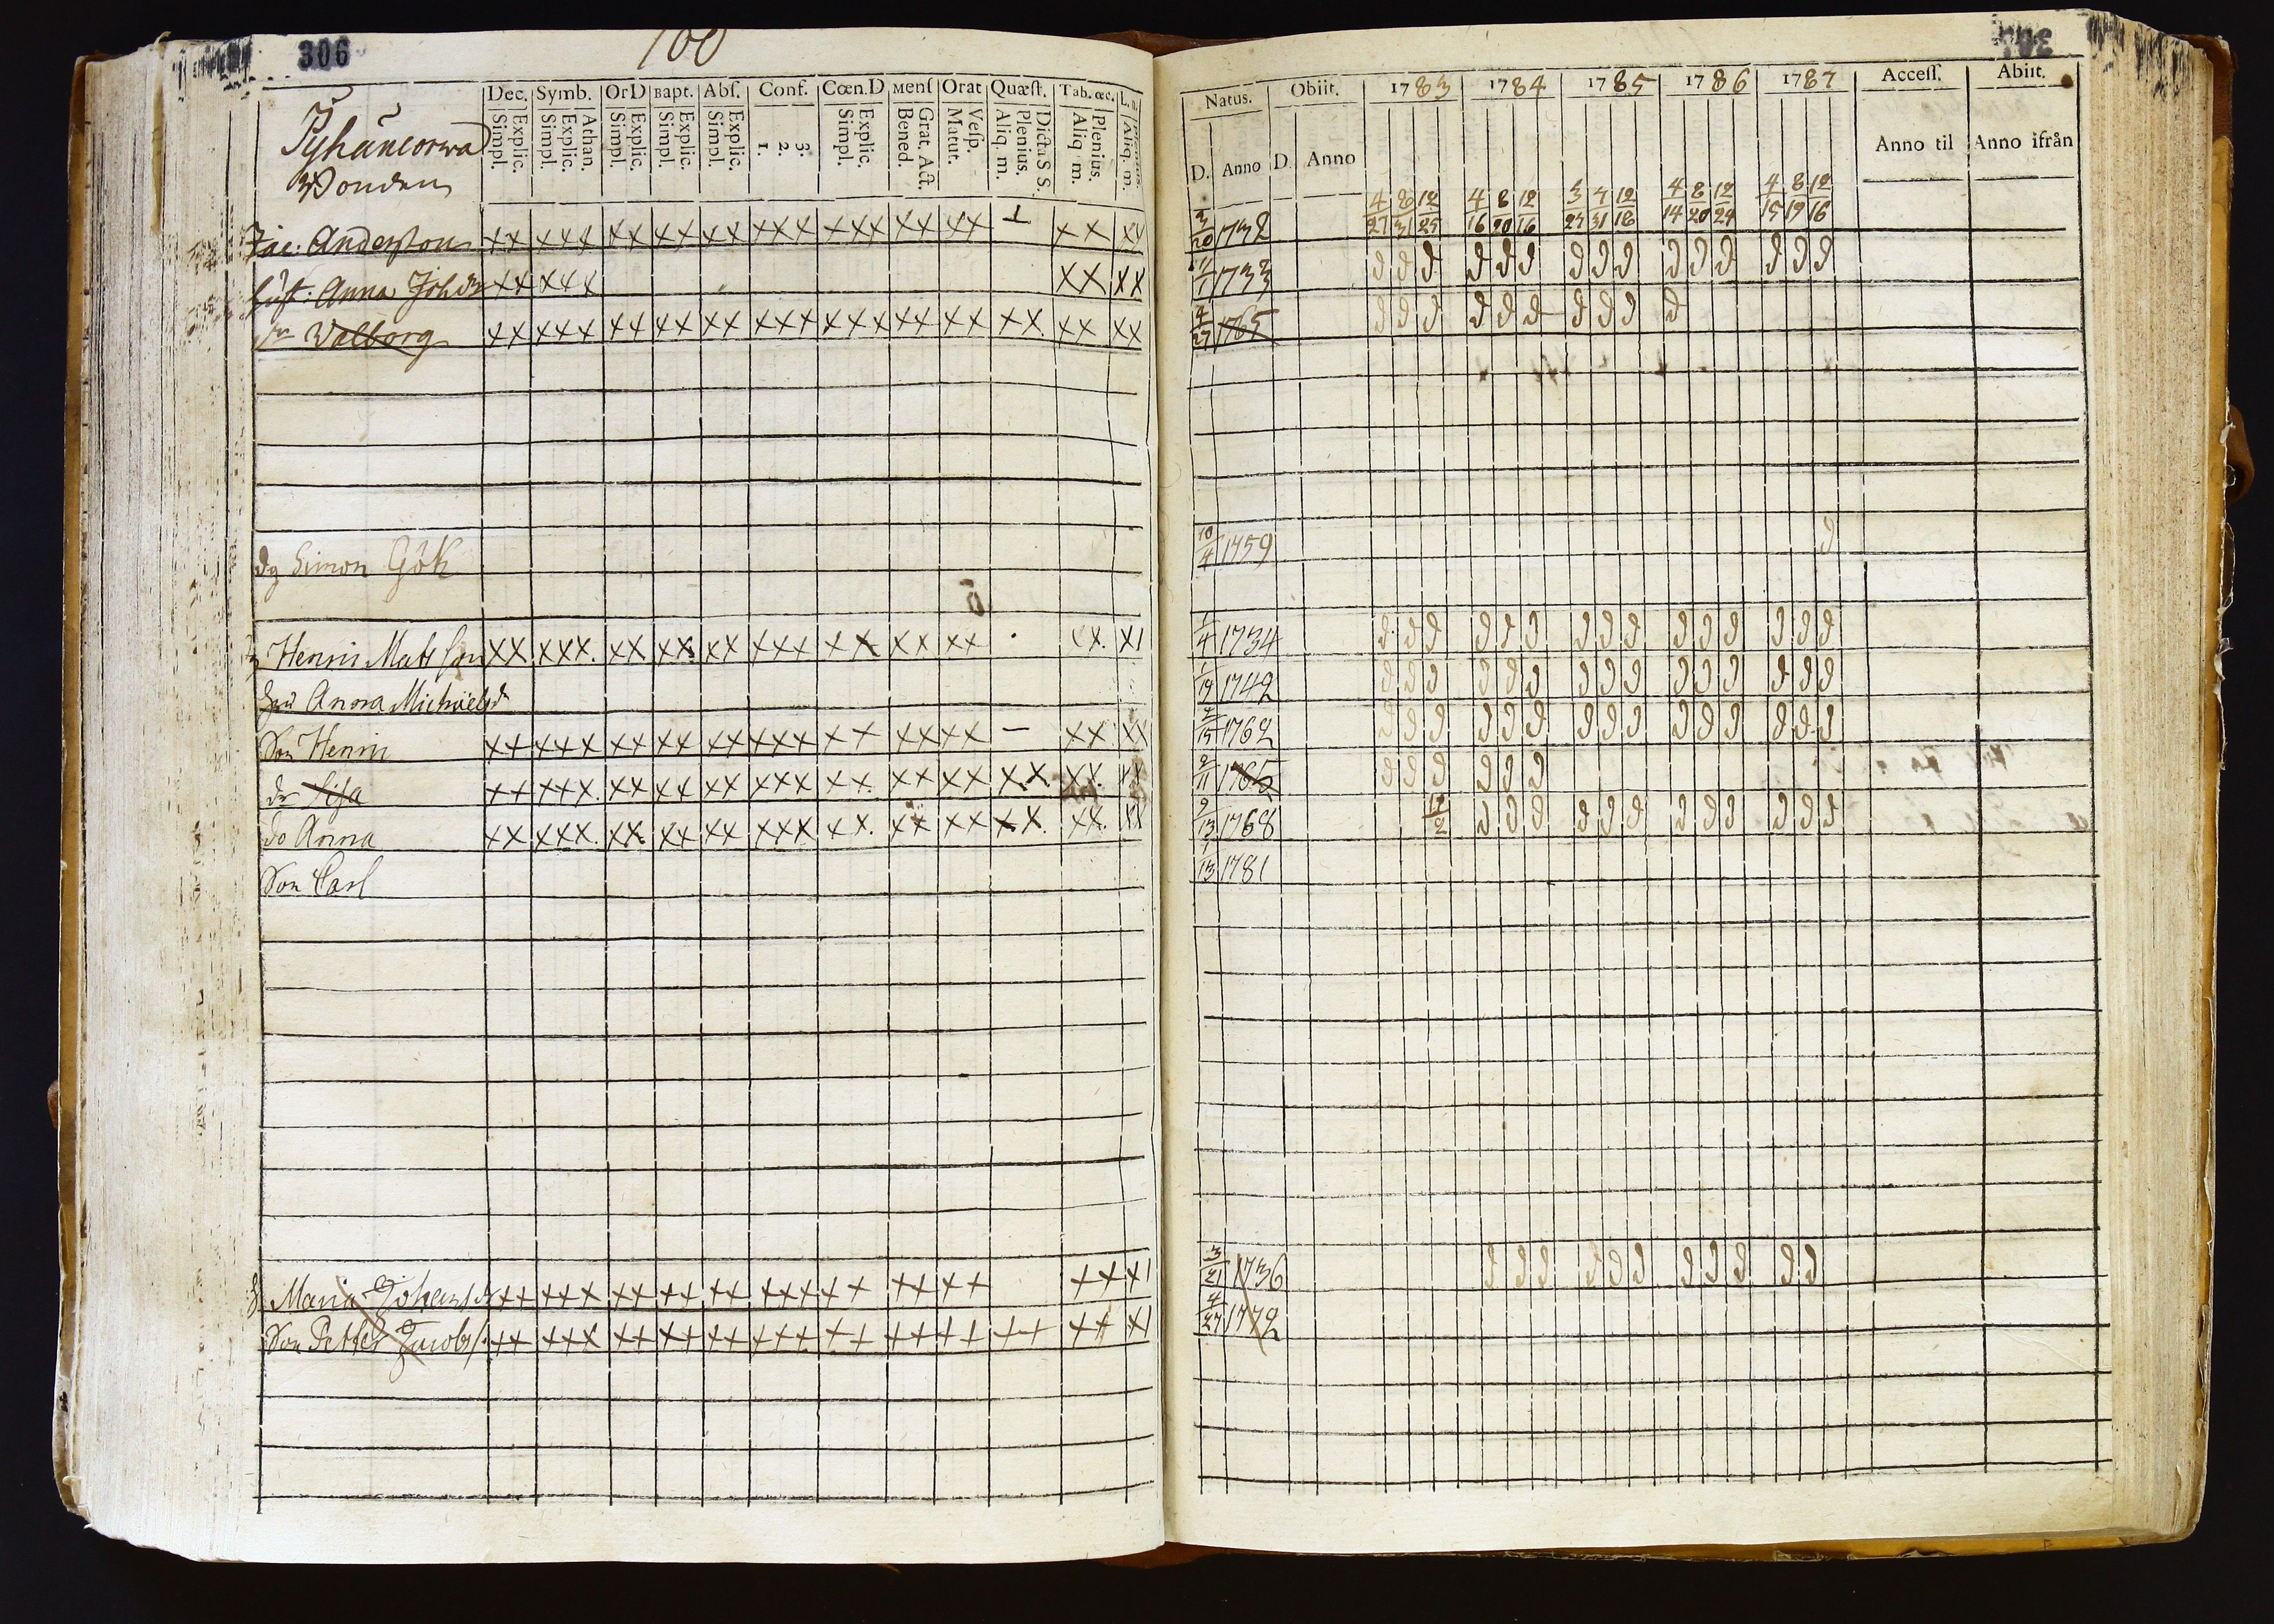 306
100
Dec. Symb. OrD Bapt. Abſ. Conf. Cœn.D Menſ Orat Quæſt. Tab.œc.
Explic. Simpl. Athan. Explic. Simpl. Explic. Simpl. Explic. Simpl. Explic. Simpl. 3. 2. 1. Explic. Simpl. Grat. Act. Bened. Veſp. Matut. Dicta S S. Plenius. Aliq. m. Plenius. Aliq m. Aliq. m.
Natus. Obiit. 1783 1784 1785 1786 1787 Acceſſ. Abiit.
D. Anno D. Anno Anno til Anno ifrån
4/27 8/31 12/25 4/16 8/20 12/16 7/31 12/18 4/14 8/20 12/24 4/15 8/19 12/16
Jac: Anderſson xx xxx xx xx xx xxx xxx xx xx xx xx 3/20 1732
huſt: Anna Joh dr xx xxx xx xx 1733 d d d d d d d d d d d d d d d
dr Walborg xx xxx xx xx xx xxx xxx xx xx xx xx xx 4/27 1765 d d d d d d d d d d
dg Simon Gök 10/4 1759 d
Henric Matsson xx xxx xx xx xx xxx xx xx xx xx x1 1/4 1734 d d d d d d d d d d d d d d d
Anna Michaelsd 1/19 1742 d d d d d d d d d d d d d d d
Son Henric xx xxx xx xx xx xxx xx xx xx – xx xx 2/15 1762 d d d d d d d d d d d d d d d
dr Lisa xx xxx xx xx xx xxx xx xx xx xx xx xx 2/11 1765 d d d d d d
do Anna xx xxx xx xx xx xxx xx xx xx xx xx xx 9/13 1768 12/2 d d d d d d d d d d d d
Son Carl 1/13 1781
Maria Johansdr xx xxx xx xx xx xxx xx xx xx xx x1 3/21 1736 d d d d d d d d d d d
Son Petter Jacobs: xx xxx xx xx xx xxx xx xx xx xx xx x1 4/27 1772